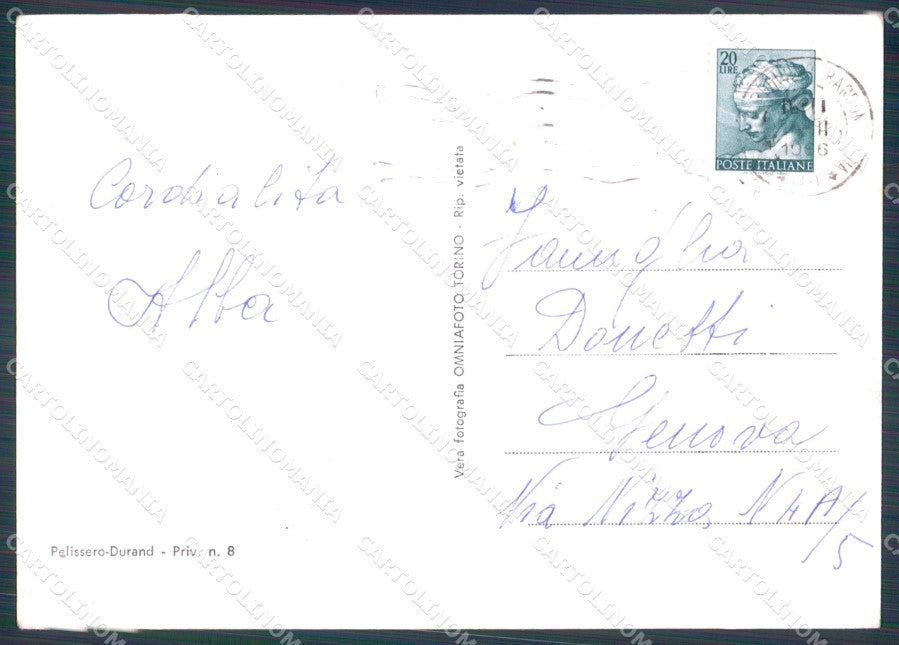 20
LIRE
POSTE ITALIANE
Cordialità
Alba
Vera fotografia OMNIAFOTO TORINO - Rip. vietata
Famiglia
Donetti
Genova
Via Nizza N 4A/5
Pelissero-Durand - Priv. n. 8
CARTOLINOMANIA